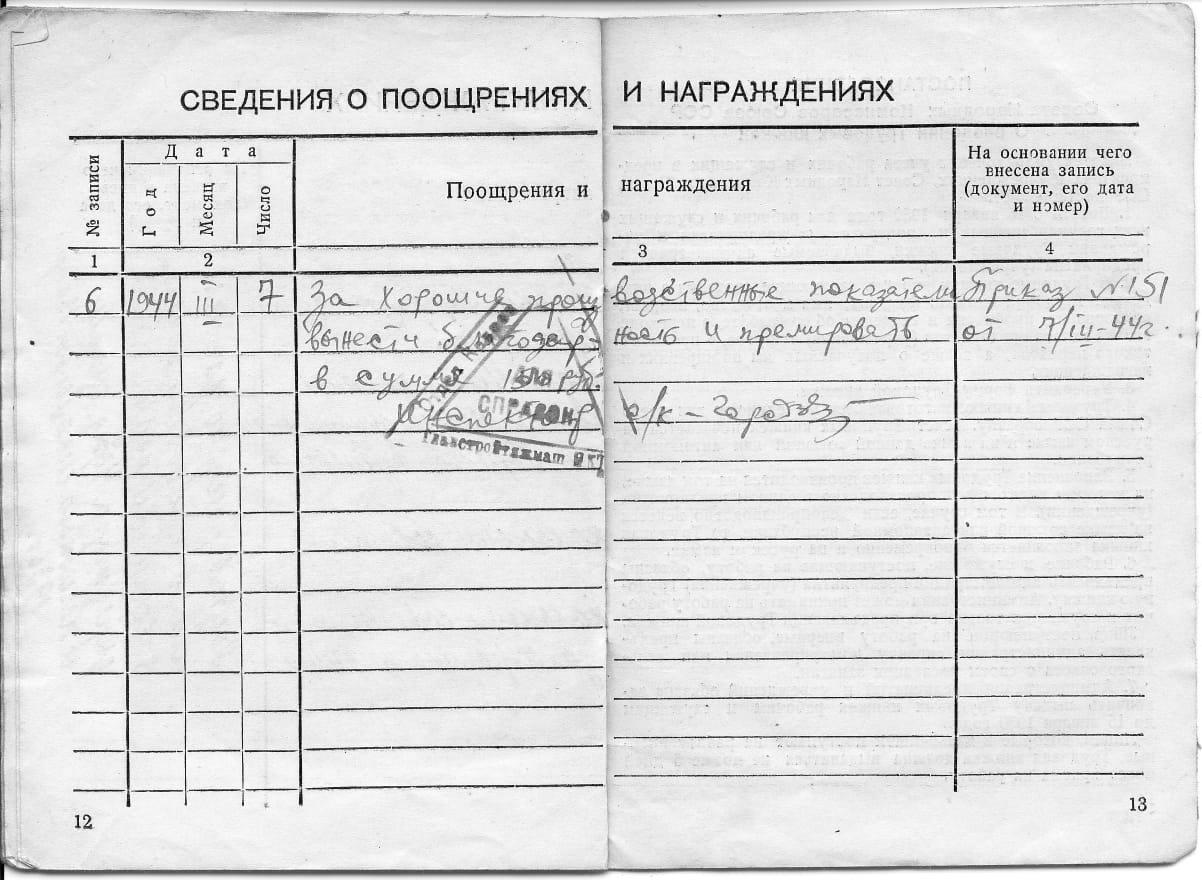 СВЕДЕНИЯ О ПООЩРЕНИЯХ И НАГРАЖДЕНИЯХ
№ записи
Дата
Год
Месяц
Число
Поощрения и награждения
На основании чего
внесена запись
(документ, его дата
и номер)
1 2 3 4
6 1944 III 7 За хорошие произ водственные показатели Приказ №151
вынести благодар ность и премировать от 7/III-44г.
в сумме руб.
Инспектор о/к -
ОТДЕЛ
ДЛЯ
СПРАВОК
Главстройтяжмаш
12
13